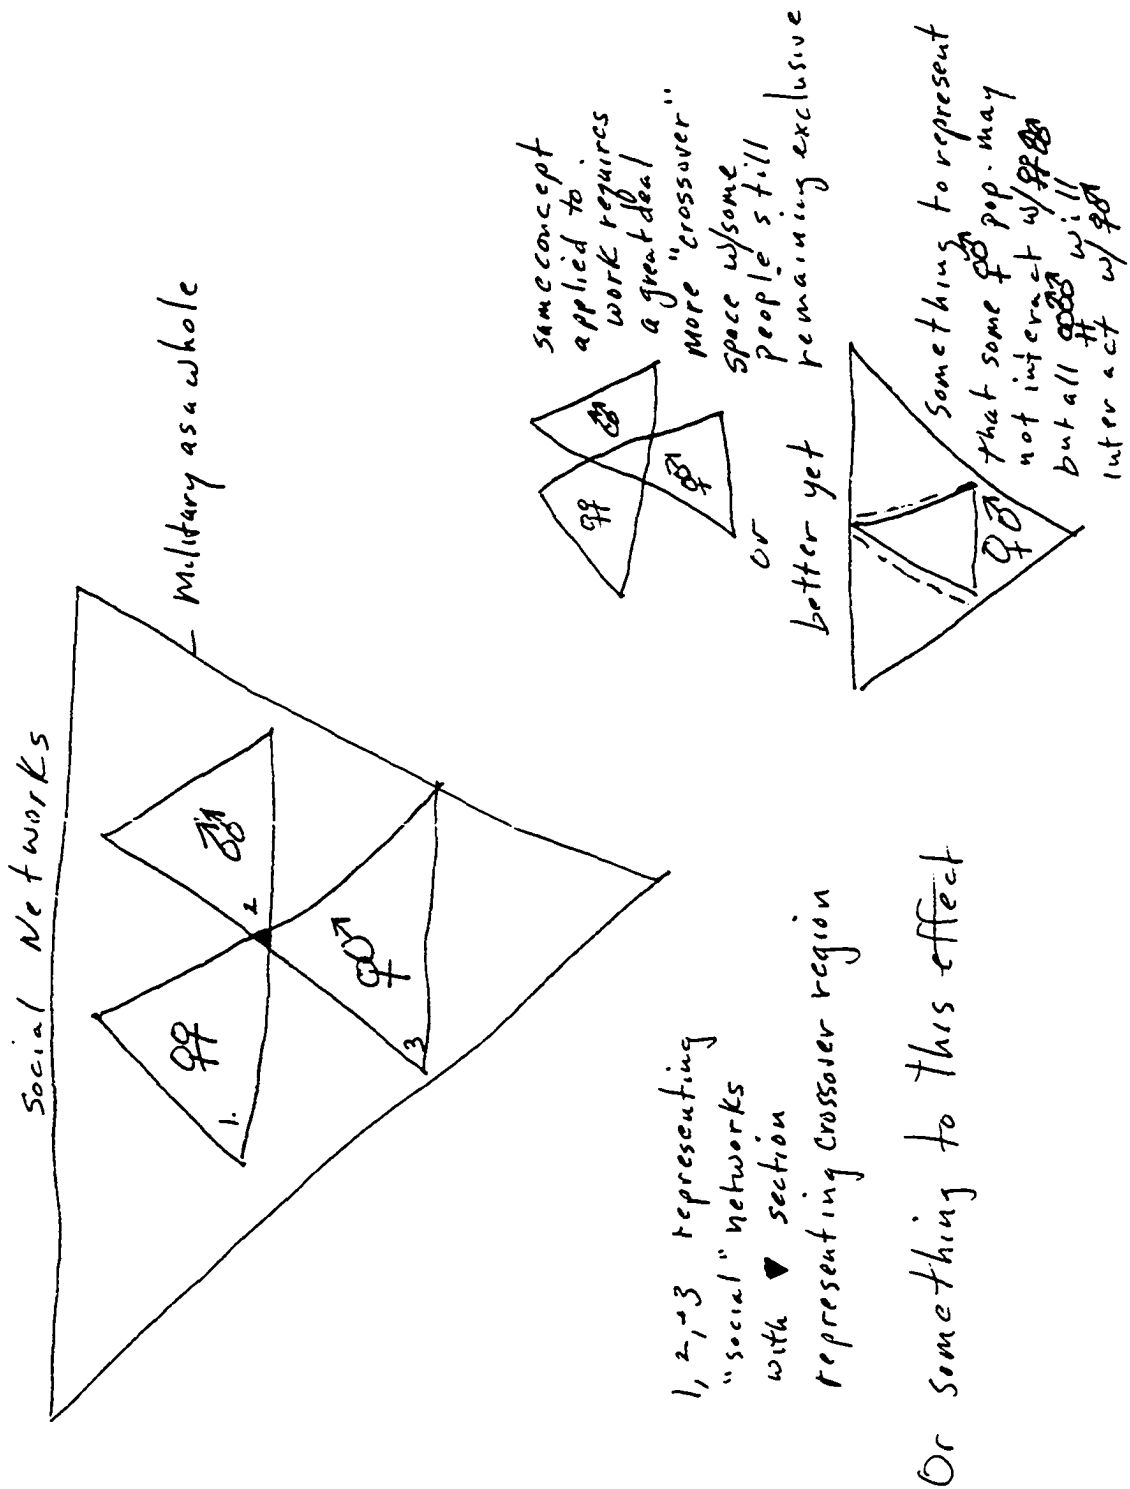 Social Networks
Military as a whole
♀♀
♂♂
♀♂
1.
2
3
1, 2, + 3 representing
"social" networks
with ▼ section
representing crossover region
Or something to this effect
same concept
applied to
work requires
a great deal
more "crossover"
space w/some
people still
remaining exclusive
♀♀
♂♂
♀♂
or
better yet
♀♂
Something to represent
that some ♀♂ pop. may
not interact w/ ♀♀ ♂♂
but all ♀♀ ♂♂ will
interact w/ ♀♂